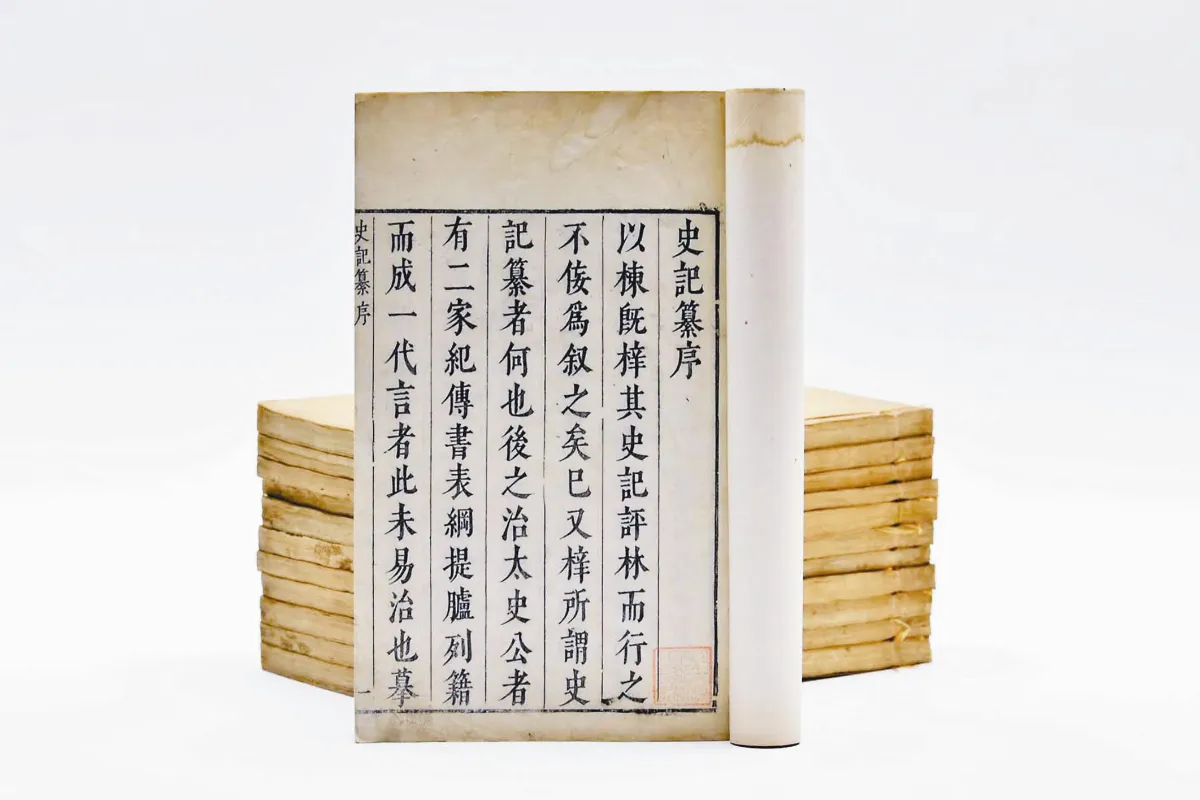 史記纂序
以棟既梓其史記評林而行之
不侫爲叙之矣已又梓所謂史
記纂者何也後之治太史公者
有二家紀傳書表綱提臚列籍
而成一代言者此未易治也摹
史記纂序
一